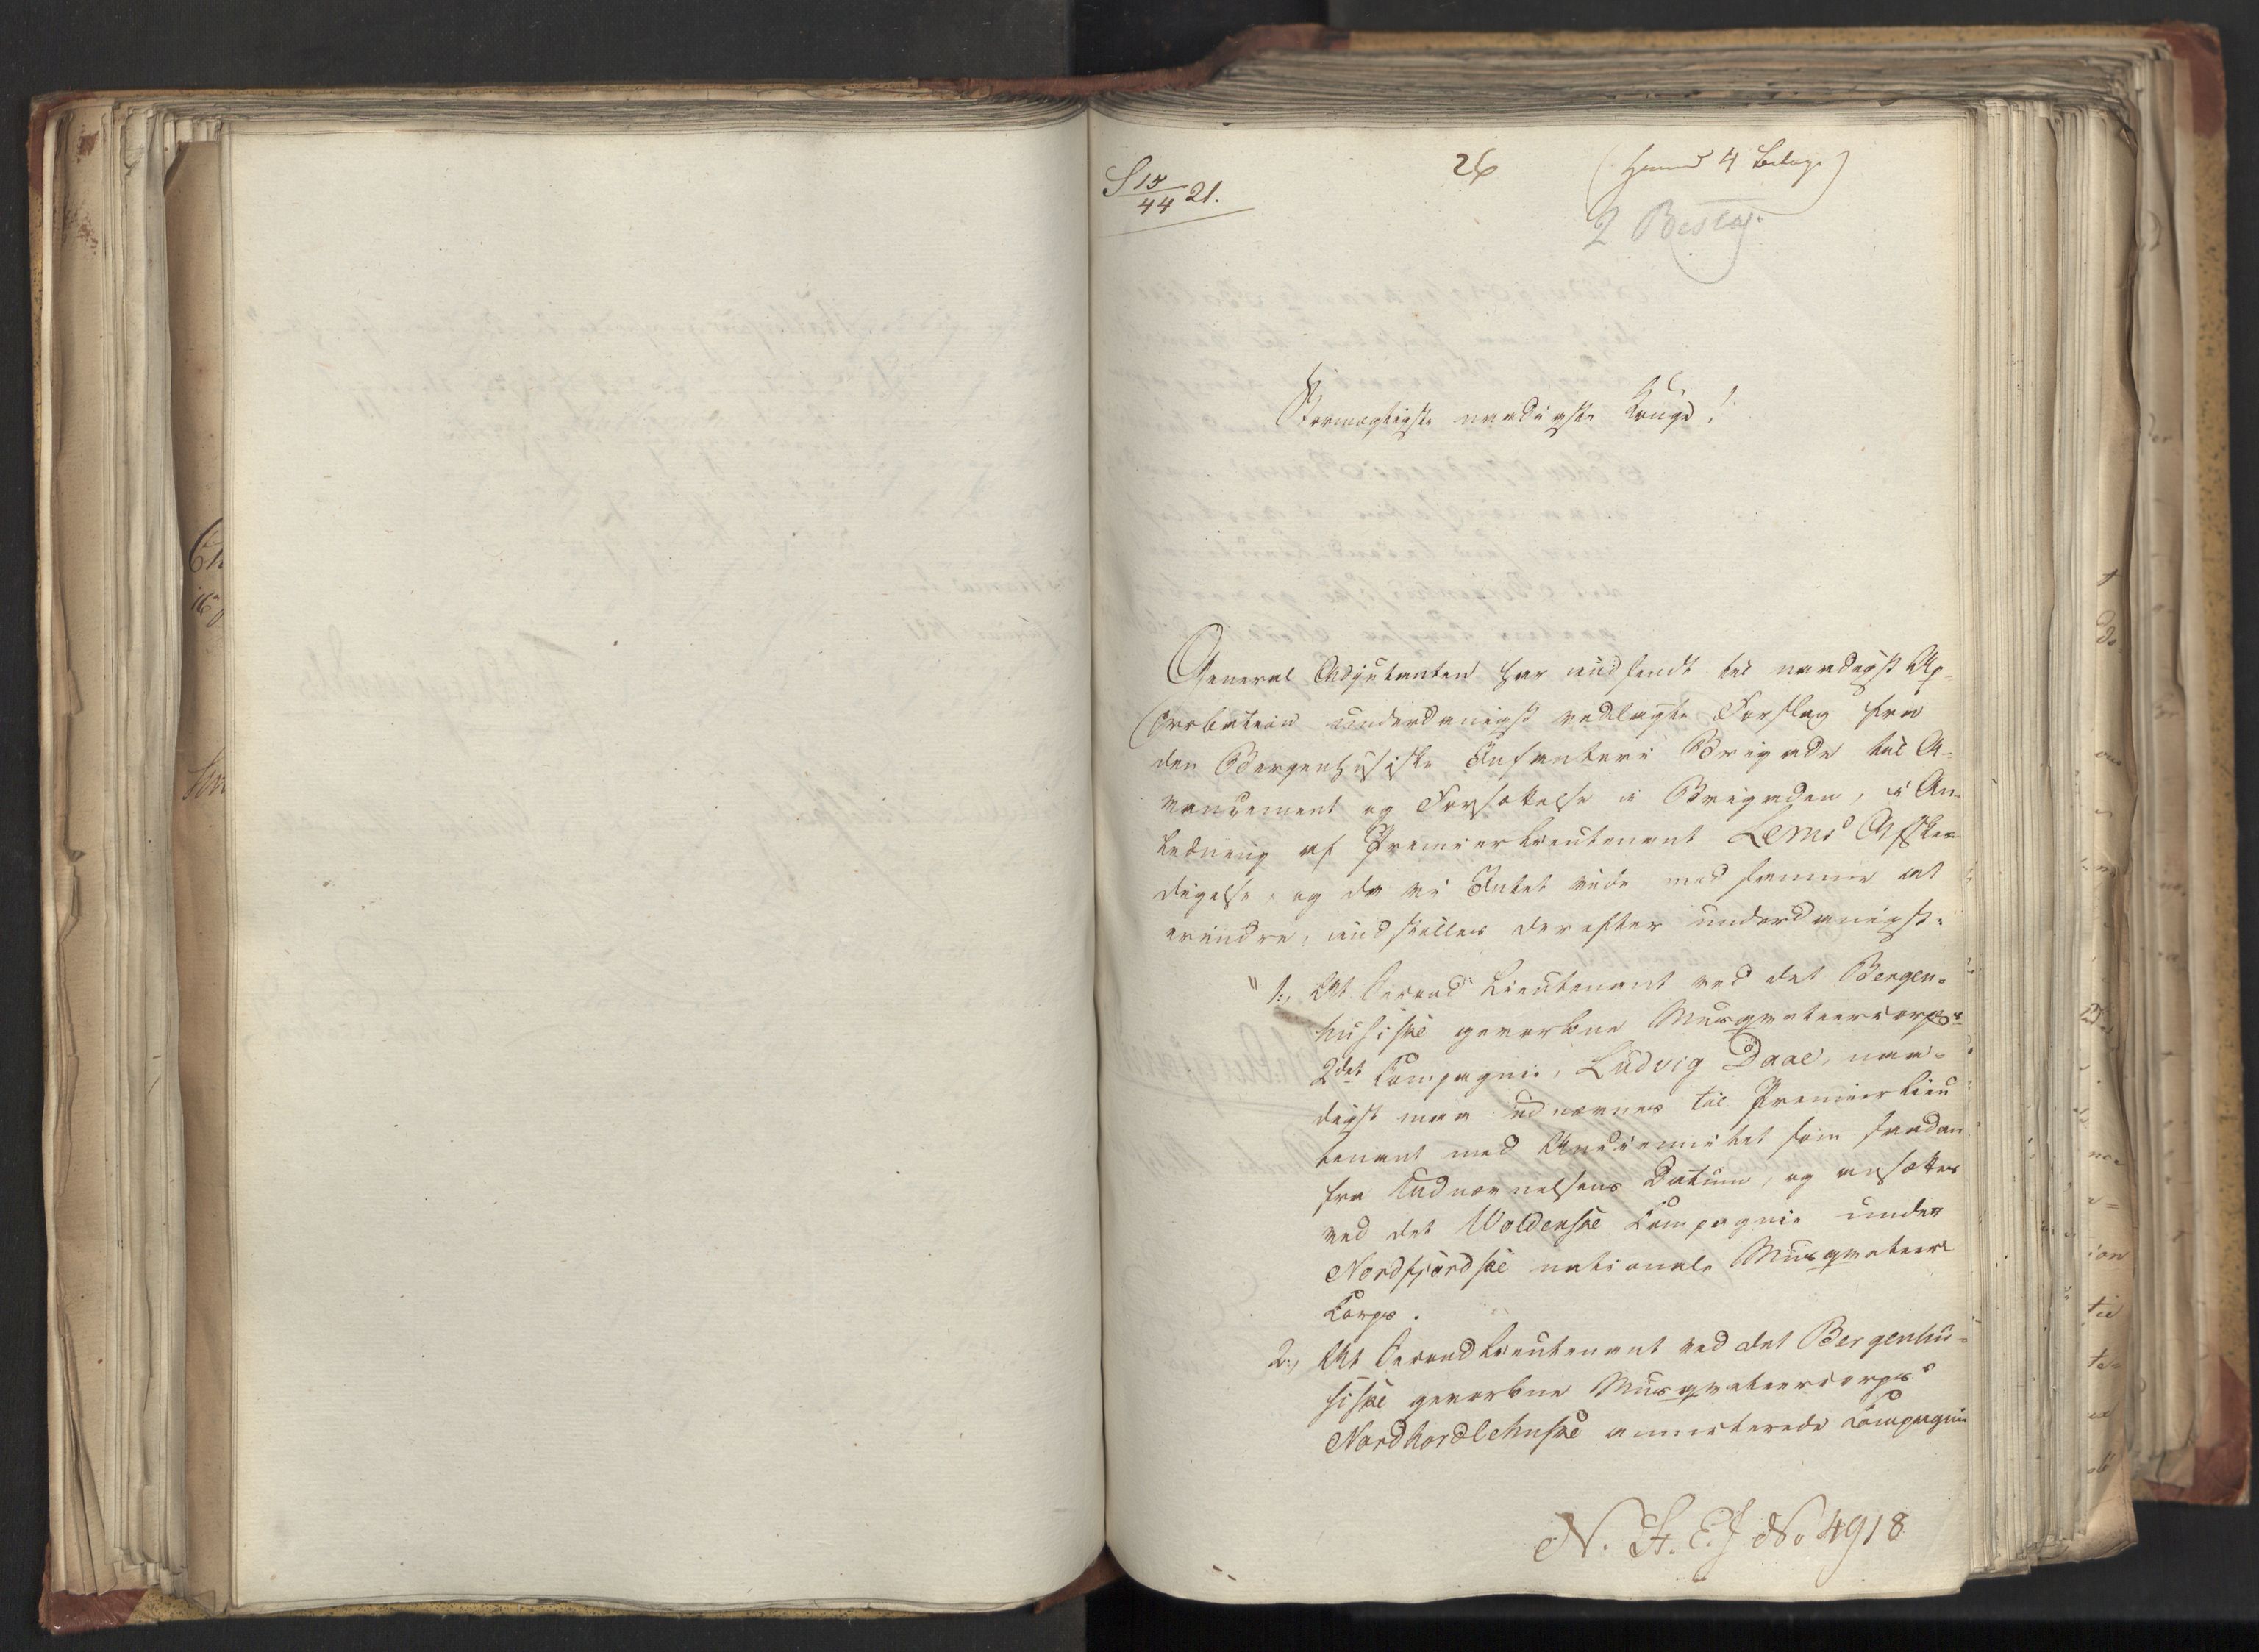 S 15/44 21.
26
(Herved 4 Bilag)
2 Beslag
Stormægtigste naadigste Konge!
General Adjutanten har indsendt til naadigst Ap-
probation underdanigst vedlagte Forslag fra
den Bergenhusiske Infanterie Brigade til A-
vancement og Forsættelse i Brigaden, i An-
ledning af Premierlieutenant Lems Afske-
digelse, og da vi Intet vide med samme at
erindre, indstilles derefter underdanigst:
"1., At Second Lieutenant ved det Bergen-
husiske gevorbne Musqveteercorps's
2det Compagnie, Ludvig Daae, naa-
digst maa udnævnes til Premierlieu
tenant med Anciennitet som saadan
fra Udnævnelsens Datum, og ansættes
ved det Woldenske Compagnie under
Nordfjordske nationale Musqveteer
Corps.
2., At Secondlieutenant ved det Bergenhu-
siske gevorbne Musqveteercorps's
Nordhordlehnske annecterede Compagnie
N. H. E. J No 4918